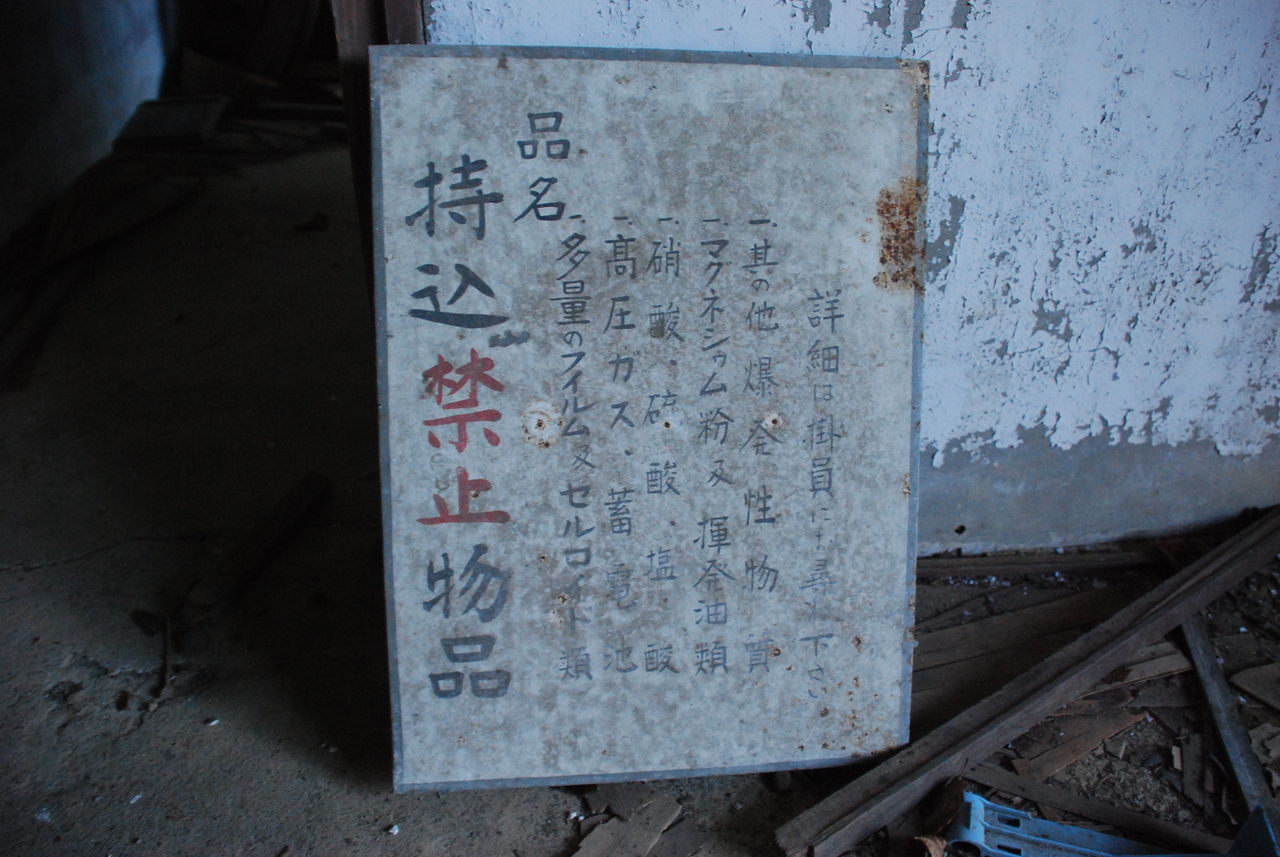 持込禁止物品
品名
一、多量のフイルム及セルロイド類
一、髙圧ガス・蓄電池
一、硝酸・硫酸・塩酸
一、マグネシウム粉及揮発油類
一、其の他爆発性物質
詳細は掛員にお尋ね下さい